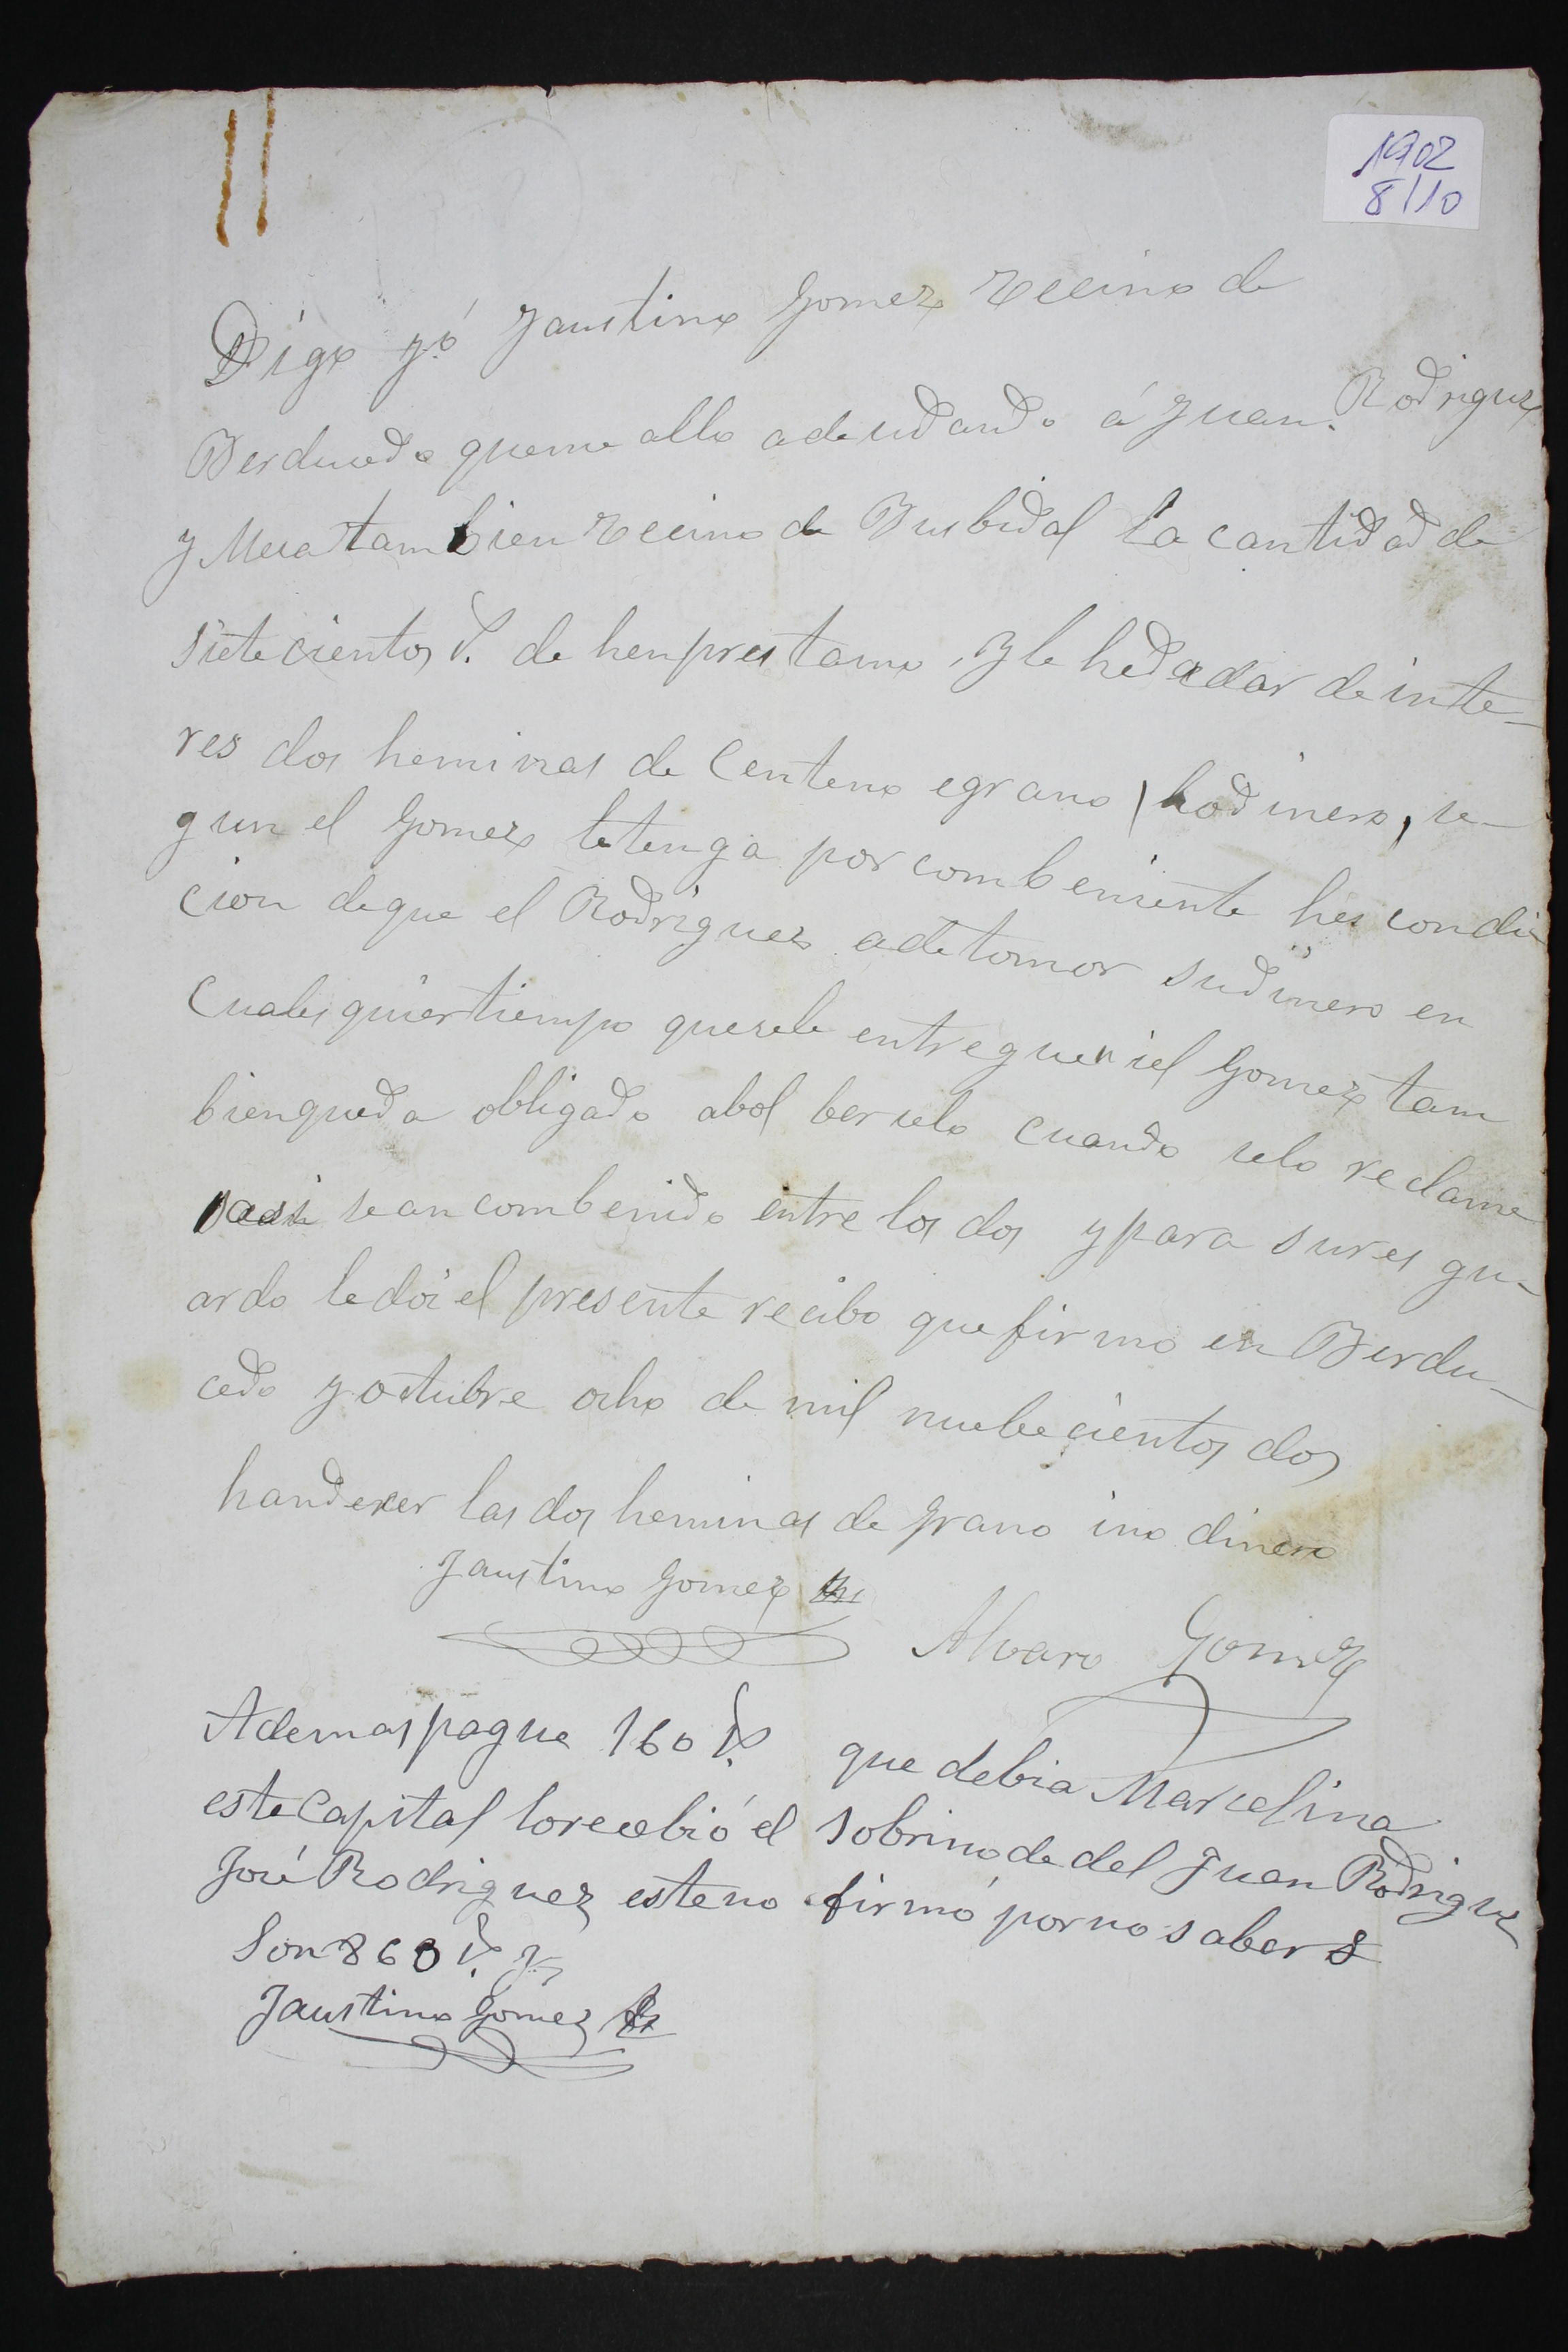 1902
8/10
Digo yó Faustino Gomez Becino de
Berducedo queme allo adeudando á Juan. Rodriguez
y Mesa tambien Becino de Busbidal la cantidad de
siete cientos r. de henprestamo, y le hedadar de inte-
res dos heminas de Centeno egrano hodinero, se-
gun el Gomez letenga por combeniente hes condi-
cion deque el Rodriguez adetomar sudinero en
Cuales quier tiempo quesele entregue iel Gomez tam
bienqueda obligado abol berselo cuando selo reclame
seancombenido entre los dos y para sures gu-
ardo ledoi el presente recibo quefirmo en Berdu-
cedo y octubre ocho de mil nuebecientos dos
handeser las dos heminas de grano ino dinero
Faustino Gomez
Alvaro Gomez
Ademas pague 160 r. que debia Marcelina
este Capital lorecebió el sobrino de del Juan Rodriguez
José Rodriguez esteno firmó por no saber
Son 860 r.
Faustino Gomez